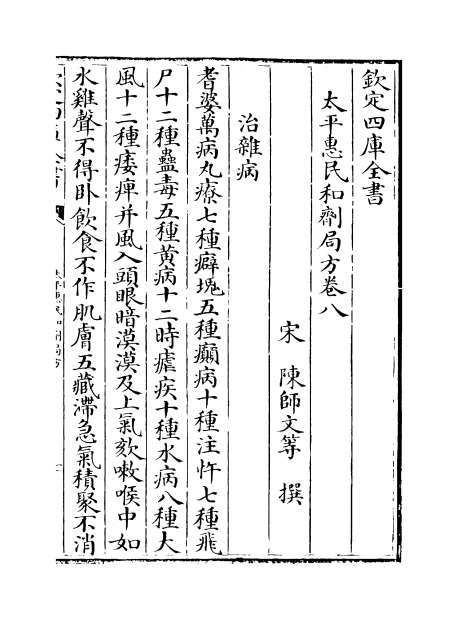 欽定四庫全書
太平惠民和劑局方卷八
宋 陳師文等 撰
治雜病
耆婆萬病丸療七種癖塊五種癲病十種注忤七種飛
尸十二種蠱毒五種黄病十二時瘧疾十種水病八種大
風十二種痿痺并風入頭眼暗漠漠及上氣欬嗽喉中如
水雞聲不得卧飲食不作肌膚五藏滯急氣積聚不消